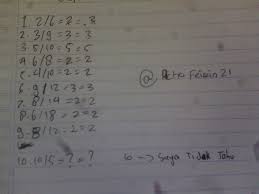 1. 2/6 = 2 = 3
2. 3/9 = 3 = 3
3. 5/10 = 5 = 5
4. 6/8 = 2 = 2
5. 4/10 = 2 = 2
6. 9/12 = 3 = 3
7. 8/14 = 2 = 2
8. 6/18 = 2 = 2
9. 8/12 = 2 = 2
10. 10/5 = ? = ?
@ 21
6 → Saya Tidak Tahu